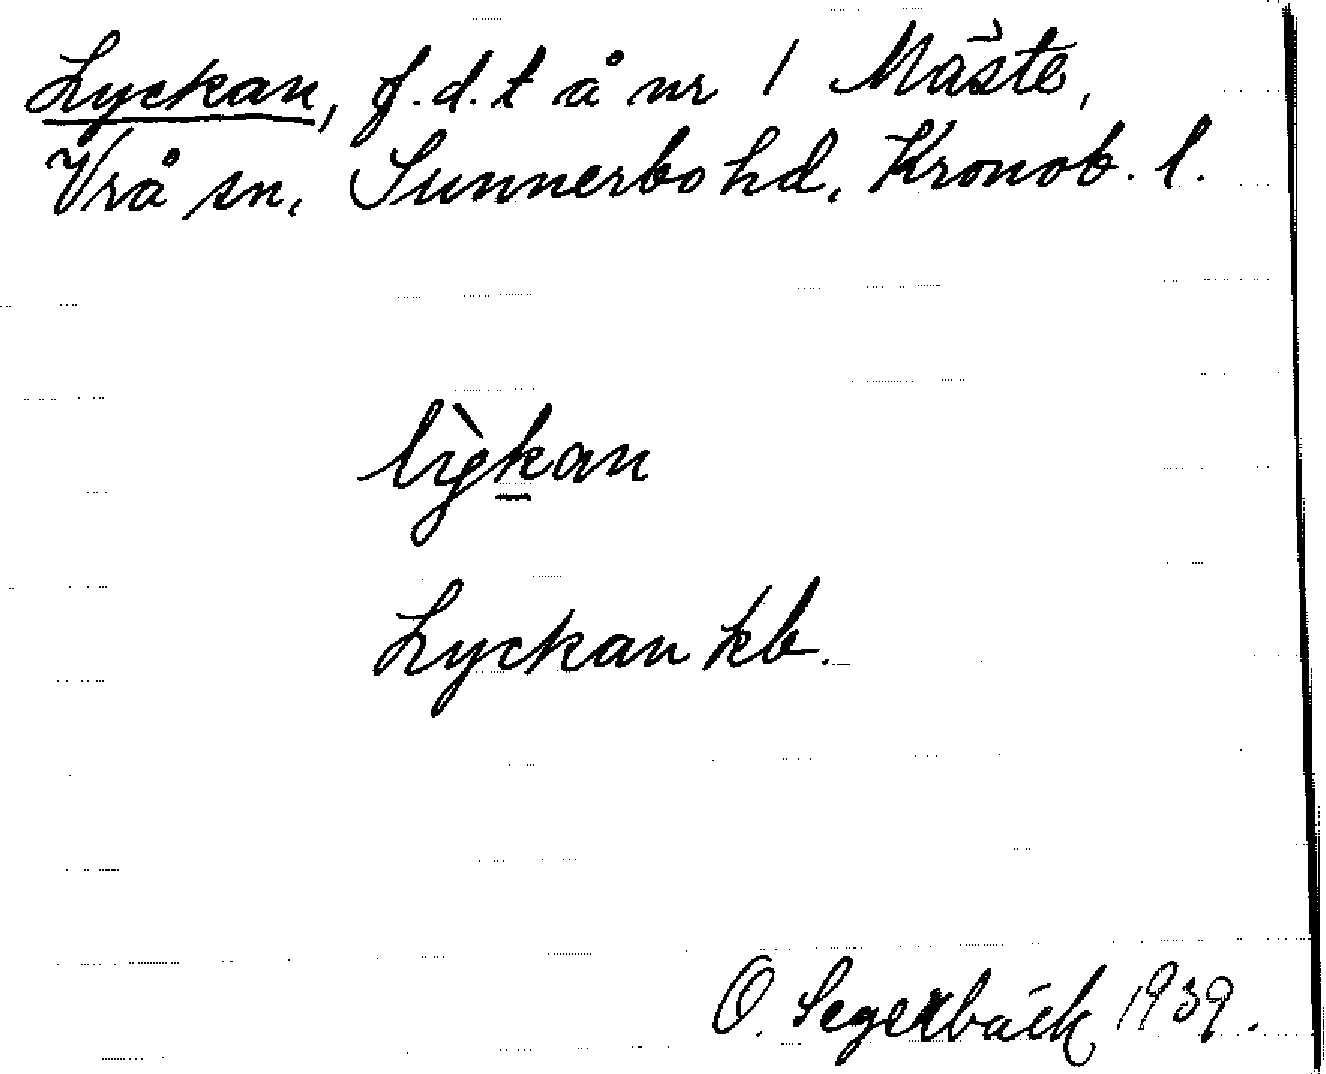 Lyckan, f.d.t å nr 1 Mäste,
Vrå sn, Sunnerbo hd, Kronob. l.
lỳkan
Lyckan kb.
O. Segerbäck 1939.